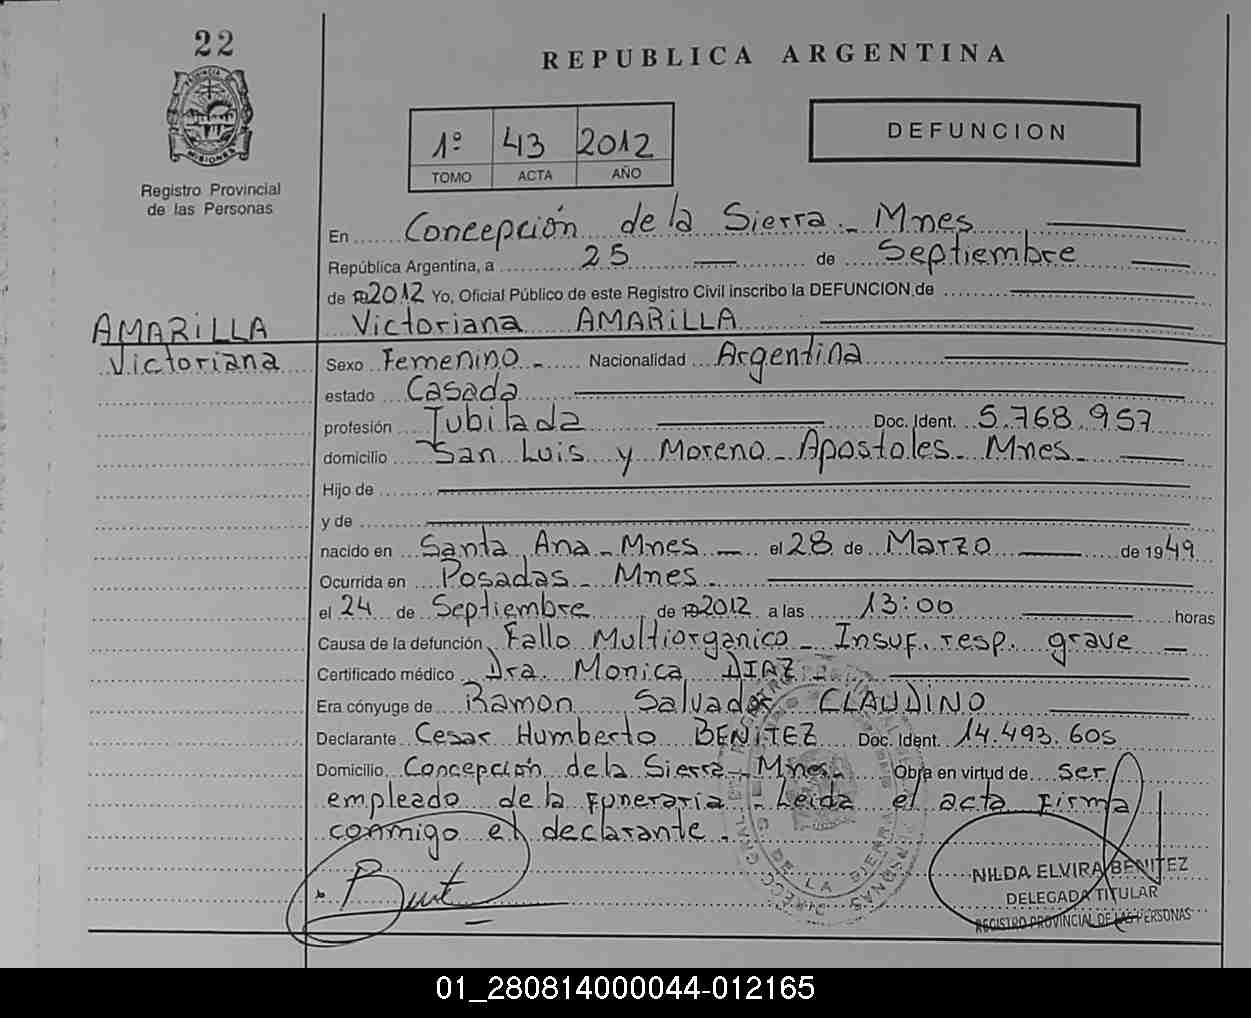 22
PROVINCIA DE
MISIONES
Registro Provincial
de las Personas
REPUBLICA ARGENTINA
1º 43 2012
TOMO ACTA AÑO
DEFUNCION
En Concepción de la Sierra - Mnes
República Argentina, a 25 de Septiembre
de 2012 Yo, Oficial Público de este Registro Civil inscribo la DEFUNCION de
AMARILLA
Victoriana
Victoriana AMARILLA
Sexo Femenino - Nacionalidad Argentina
estado Casada
profesión Jubilada Doc. Ident. 5.768.957
domicilio San Luis y Moreno - Apostoles - Mnes -
Hijo de
y de
nacido en Santa Ana - Mnes - el 28 de Marzo de 1949
Ocurrida en Posadas - Mnes -
el 24 de Septiembre de 2012 a las 13:00 horas
Causa de la defunción Fallo Multiorganico - Insuf. resp. grave -
Certificado médico Dra. Monica DIAZ -
Era cónyuge de Ramon Salvador CLAUDINO
Declarante Cesar Humberto BENITEZ Doc. Ident. 14.493.605
Domicilio Concepción de la Sierra - Mnes - Obra en virtud de ser
empleado de la Funeraria - Leida el acta Firma
conmigo el declarante -
DE LA SIERRA
NILDA ELVIRA BENITEZ
DELEGADA TITULAR
REGISTRO PROVINCIAL DE LAS PERSONAS
01_280814000044-012165